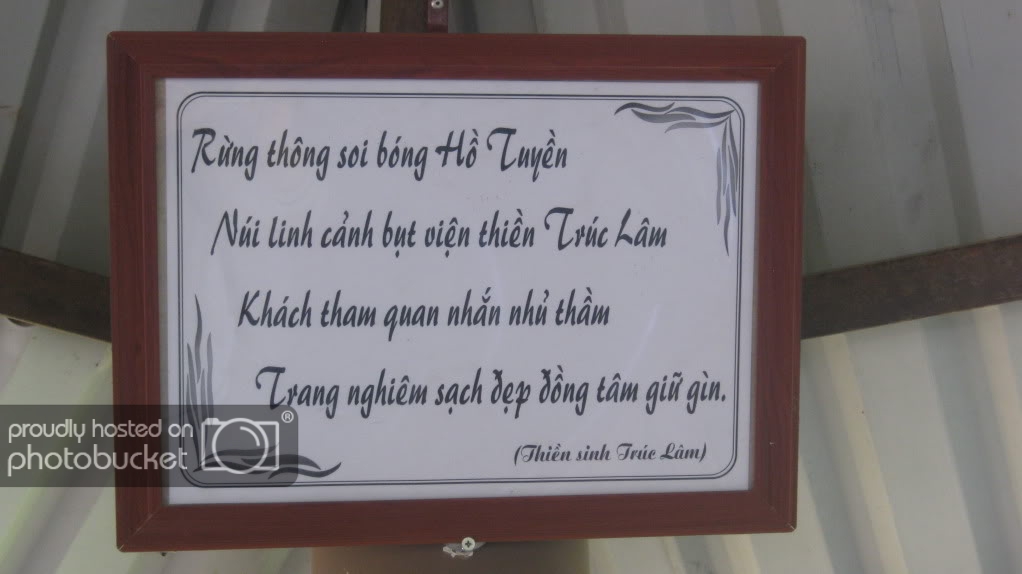 Rừng thông soi bóng Hồ Tuyền
Núi linh cảnh bụt viện thiền Trúc Lâm
Khách tham quan nhắn nhủ thầm
Trang nghiêm sạch đẹp đồng tâm giữ gìn.
(Thiền sinh Trúc Lâm)
proudly hosted on
photobucket ®